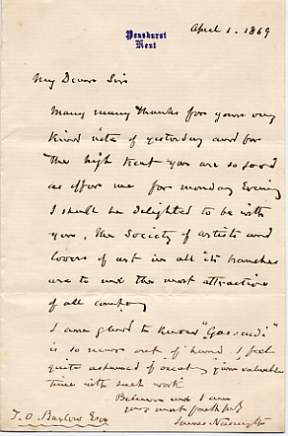 Penshurst
Kent
April 1. 1869
My Dear Sir
Many many Thanks for your very
Kind note of yesterday and for
The high treat you are so good
as offer me for Monday Evening
I shall be Delighted to be with
you, The Society of artists and
lovers of art in all its branches
are to me the most attractive
of all company
I am glad to know "Gassendi"
is so near out of hand. I feel
quite ashamed of occupying your valuable
time with such work
Believe me I am
yours most faithfully
James Nasmyth
T. O. Barlow Esqr